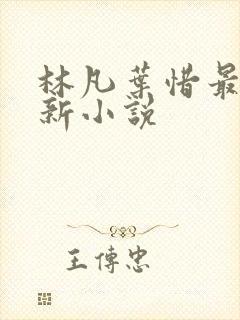 林凡葉惜最
新小說
王傳忠